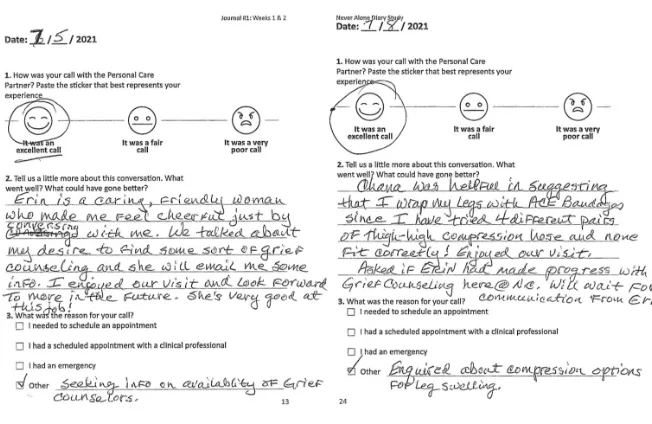 Journal #1: Weeks 1 & 2
Date: 7/5/2021
1. How was your call with the Personal Care
Partner? Paste the sticker that best represents your
experience
It was an
excellent call
It was a fair
call
It was a very
poor call
2. Tell us a little more about this conversation. What
went well? What could have gone better?
Erin is a caring, friendly woman
who made me feel cheerful just by
conversing
with me. We talked about
my desire to find some sort of grief
counseling and she will email me some
info. I enjoyed our visit and look forward
to more in the future. She's very good at
this job!
3. What was the reason for your call?
I needed to schedule an appointment
I had a scheduled appointment with a clinical professional
I had an emergency
Other Seeking info on availablity of Grief
counselors.
13
Never Alone Diary Study
Date: 7/8/2021
1. How was your call with the Personal Care
Partner? Paste the sticker that best represents your
experience
It was an
excellent call
It was a fair
call
It was a very
poor call
2. Tell us a little more about this conversation. What
went well? What could have gone better?
was helpful in suggesting
that I wrap my legs with ACE Bandages
since I have tried 4 different pairs
of thigh-high compression hose and none
fit correctly! Enjoyed our visit.
Asked if Erin had made progress with
Grief Counseling here @ N.C. Will wait for
communication from
3. What was the reason for your call?
I needed to schedule an appointment
I had a scheduled appointment with a clinical professional
I had an emergency
Other Enquired about compression options
for leg swelling.
24